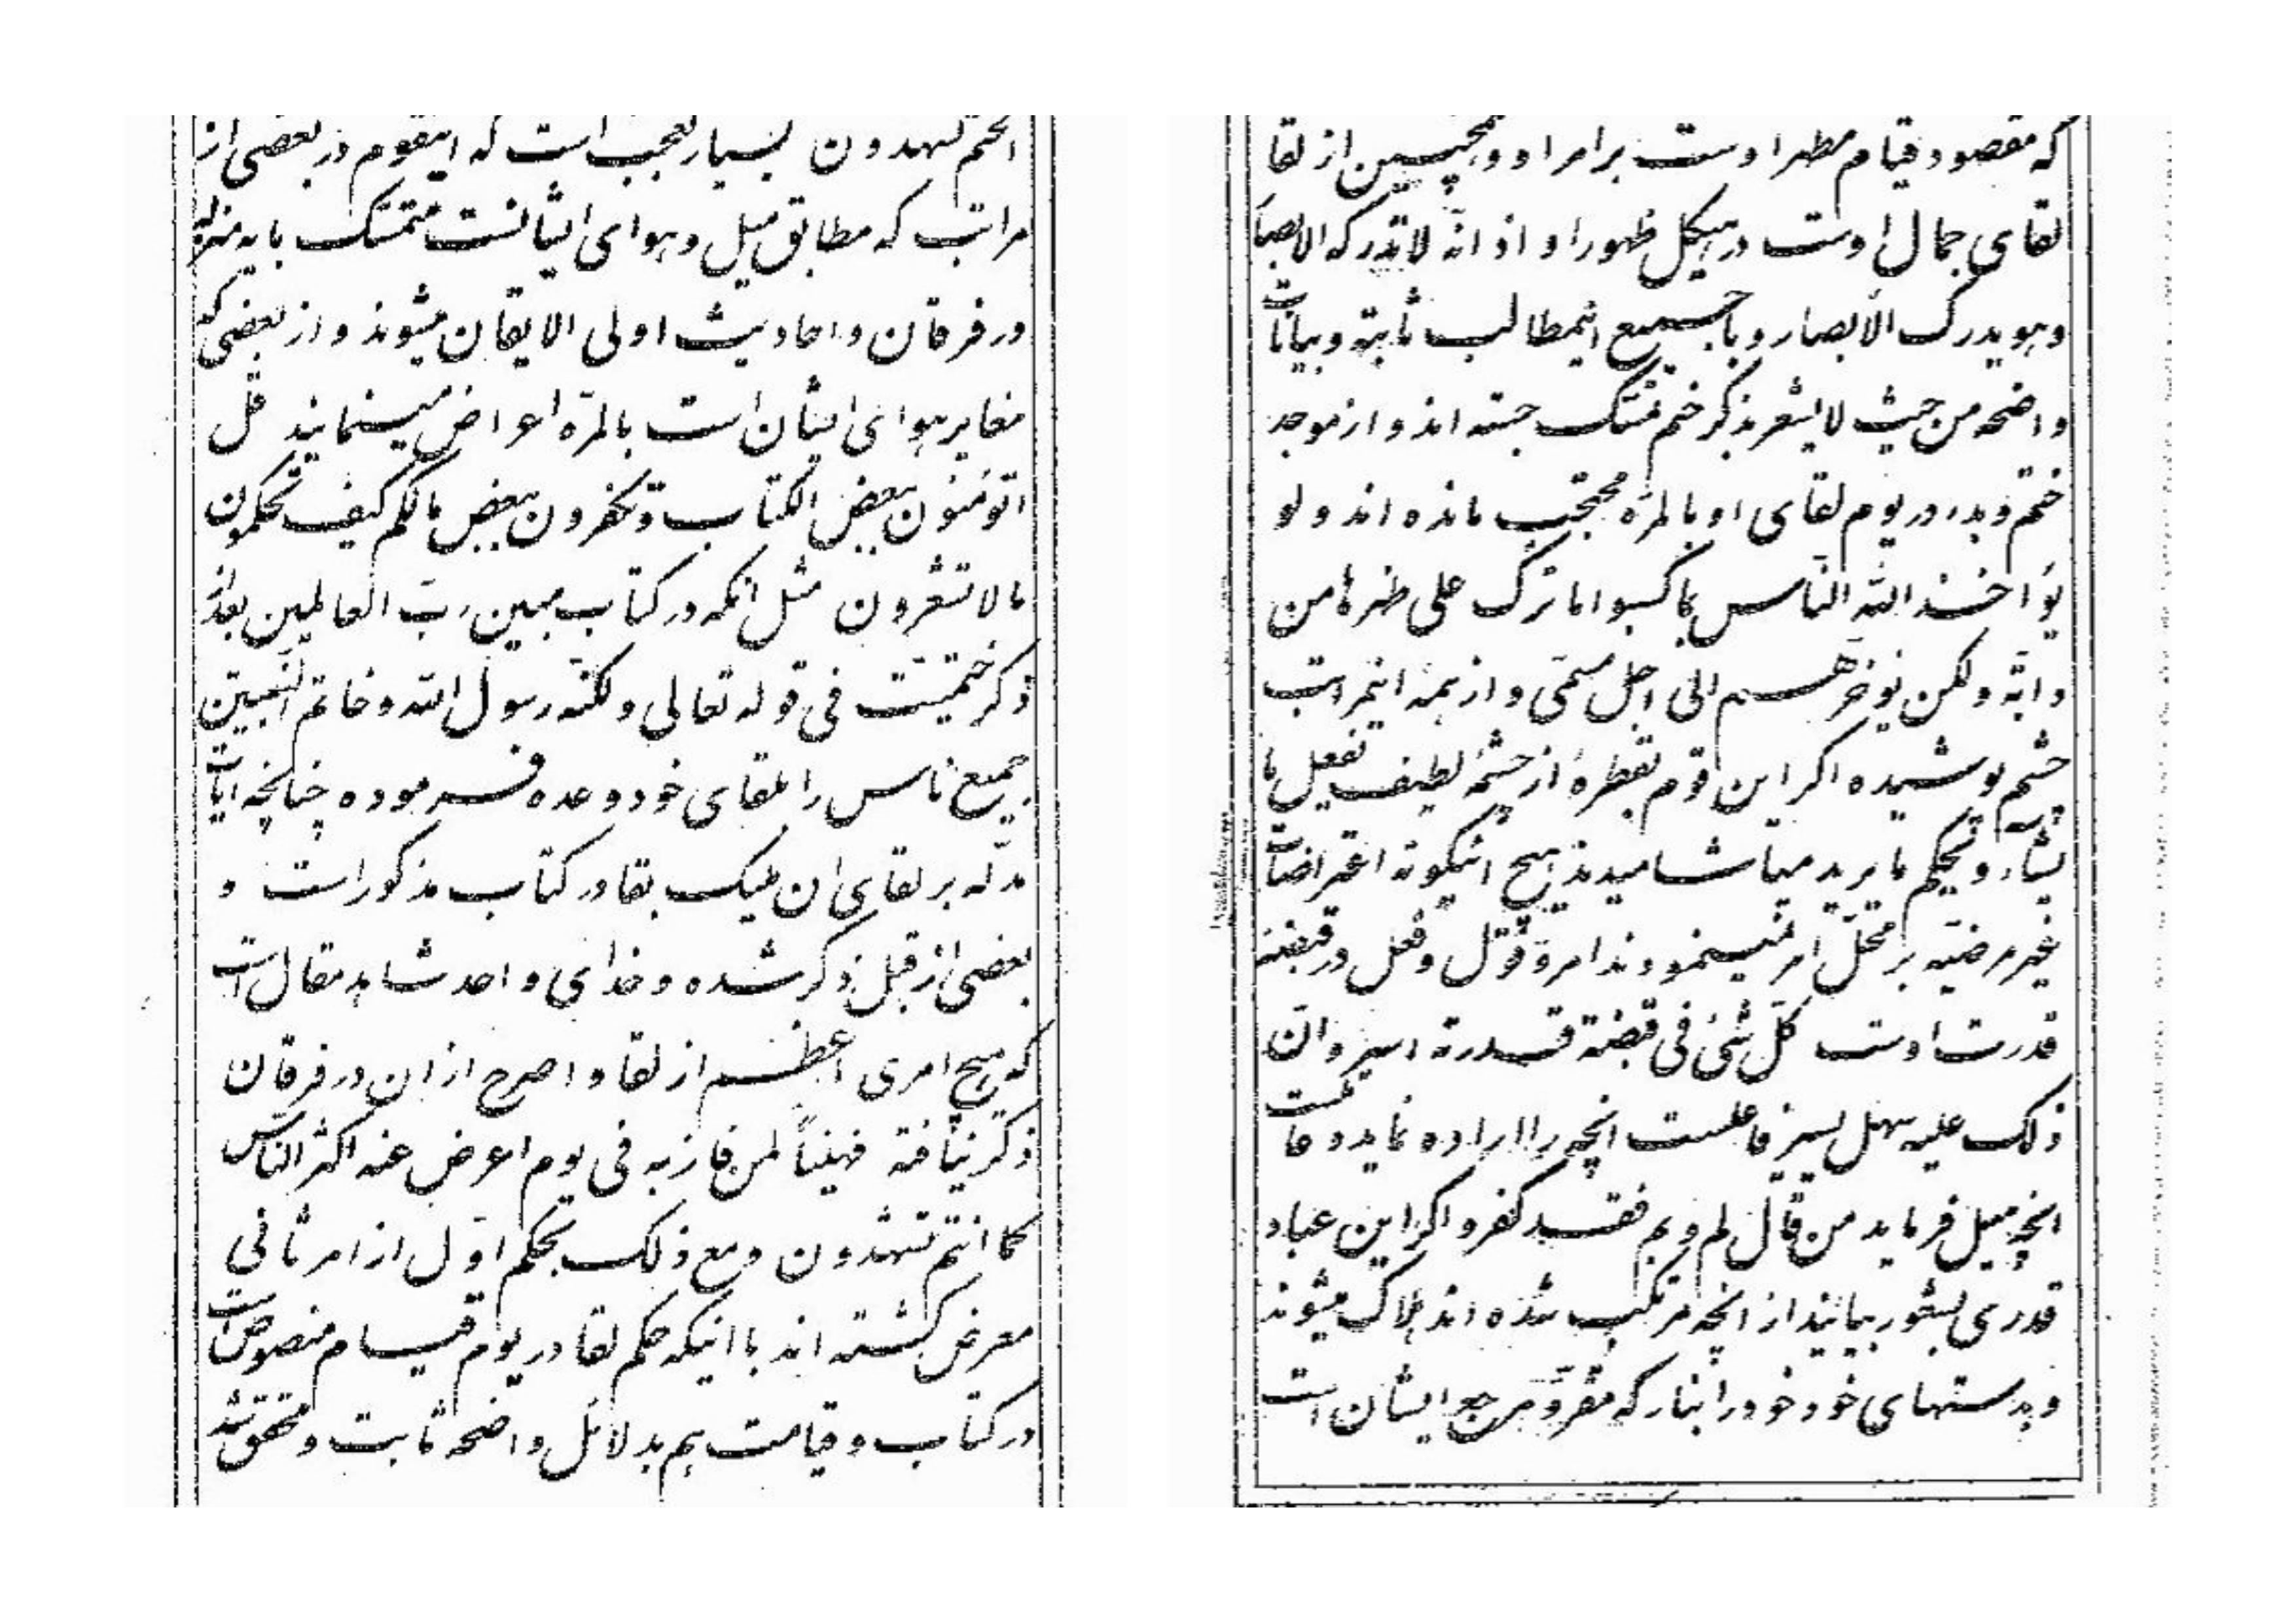 انتم تشهدون بسیار تعجب است که اینقوم در بعضی از
مراتب که مطابق میل و هوای ایشانست متمسک بایه منزله
در فرقان و احادیث اولی الایقان میشوند و از بعضی که
مغایر هوای ایشان است بالمرّه اعراض مینمایند قل
اتؤمنون ببعض الکتاب و تکفرون ببعض مالکم کیف تحکمون
مالا تشعرون مثل انکه در کتاب مبین ربّ العالمین بعد از
ذکر ختمیّت فی قوله تعالی ولکنّه رسول الله و خاتم النّبیین
جمیع ناس را بلقای خود وعده فرموده چنانچه ایات
مدلّه بر لقای ان ملیک بقا در کتاب مذکور است و
بعضی از قبل ذکر شده و خدای واحد شاهد مقال است
که هیچ امری اعظم از لقا و اصرح از ان در فرقان
ذکر نیافته فهنیئاً لمن فاز به فی یوم اعرض عنه اکثر النّاس
کما انتم تشهدون و مع ذلک بحکم اوّل از امر ثانی
معرض گشته اند با اینکه حکم لقا در یوم قیام منصوص است
در کتاب و قیامت هم بدلائل واضحه ثابت و محقق شد
که مقصود قیام مظهر اوست بر امر او و همچنین از لقا
لقای جمال اوست در هیکل ظهور او اذ انّه لا تدرکه الابصار
و هو یدرک الابصار و با جمیع اینمطالب ثابته و بیانات
واضحه من حیث لا یشعر بذکر ختم تمسّک جسته اند و از موجد
ختم و بدء در یوم لقای او بالمرّه محتجب مانده اند و لو
یؤاخذ الله النّاس بما کسبوا ما ترک علی ظهرها من
دابّه ولکن یؤخّرهم الی اجل مسمّی و از همه اینمراتب
چشم پوشیده اگر این قوم بقطرهٔ از چشمهٔ لطیف یفعل ما
یشاء و یحکم ما یرید میاشامیدند هیچ اینگونه اعتراضات
غیر مرضیّه بر محلّ امر نمینمودند امر و قول و فعل در قبضهٔ
قدرت اوست کلّ شیء فی قبضة قدرته اسیر و انّ
ذلک علیه سهل یسیر فاعلست انچه را اراده نماید و عاملست
انچه میل فرماید من قال لم و بم فقد کفر و اگر این عباد
قدری بشعور بیایند از انچه مرتکب شده اند هلاک میشوند
و بدستهای خود خود را بنار که مقرّ و مرجع ایشان است